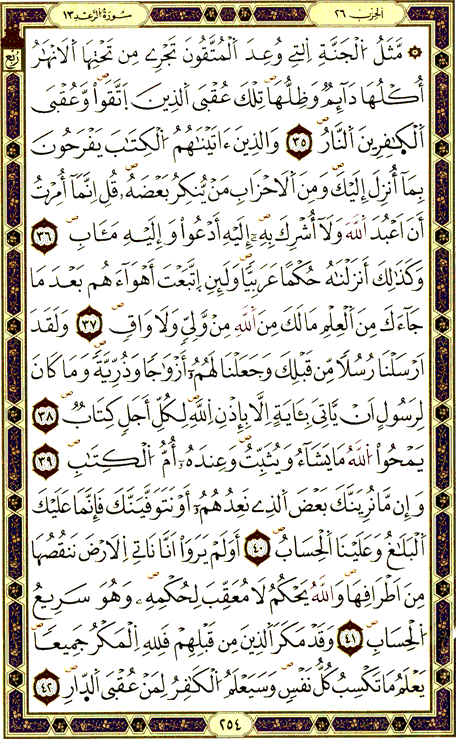 الحزب ٢٦
سورة الرعد ١٣
ربع
۞ مَّثَلُ اُ۬لْجَنَّةِ اِ۬لتِے وُعِدَ اَ۬لْمُتَّقُونَ تَجْرِے مِن تَحْتِهَا اَ۬لَانْهَٰرُ
أُكْلُهَا دَآئِمٞ وَظِلُّهَاۖ تِلْكَ عُقْبَي اَ۬لذِينَ اَ۪تَّقَواْۖ وَّعُقْبَي
اَ۬لْكٰ۪فِرِينَ اَ۬لنَّارُۖ ٣٥ وَالذِينَ ءَاتَيْنَٰهُمُ اُ۬لْكِتَٰبَ يَفْرَحُونَ
بِمَآ أُنزِلَ إِلَيْكَۖ وَمِنَ اَ۬لَاحْزَابِ مَنْ يُّنكِرُ بَعْضَهُۥۖ قُلِ اِنَّمَآ أُمِرْتُ
أَنَ اَعْبُدَ اَ۬للَّهَ وَلَآ أُشْرِكَ بِهِۦٓۖ إِلَيْهِ أَدْعُواْ وَإِلَيْهِ مَـَٔابِۖ ٣٦
وَكَذَٰلِكَ أَنزَلْنَٰهُ حُكْماً عَرَبِيّاٗۖ وَلَئِنِ اِ۪تَّبَعْتَ أَهْوَآءَهُم بَعْدَ مَا
جَآءَكَ مِنَ اَ۬لْعِلْمِ مَا لَكَ مِنَ اَ۬للَّهِ مِنْ وَّلِيّٖ وَلَا وَاقٖۖ ٣٧ وَلَقَدَ
اَرْسَلْنَا رُسُلاٗ مِّن قَبْلِكَ وَجَعَلْنَا لَهُمُۥٓ أَزْوَٰجاٗ وَذُرِّيَّةٗۖ وَمَا كَانَ
لِرَسُولٍ اَنْ يَّاتِيَ بِـَٔايَةٍ اِلَّا بِإِذْنِ اِ۬للَّهِۖ لِكُلِّ أَجَلٖ كِتَابٞۖ ٣٨
يَمْحُواْ اُ۬للَّهُ مَا يَشَآءُ وَيُثَبِّتُۖ وَعِندَهُۥٓ أُمُّ اُ۬لْكِتَٰبِۖ ٣٩
وَإِن مَّا نُرِيَنَّكَ بَعْضَ اَ۬لذِے نَعِدُهُمُۥٓ أَوْ نَتَوَفَّيَنَّكَ فَإِنَّمَا عَلَيْكَ
اَ۬لْبَلَٰغُ وَعَلَيْنَا اَ۬لْحِسَابُۖ ٤٠ أَوَلَمْ يَرَوَاْ اَنَّا نَاتِے اِ۬لَارْضَ نَنقُصُهَا
مِنَ اَطْرَافِهَاۖ وَاللَّهُ يَحْكُمُ لَا مُعَقِّبَ لِحُكْمِهِۦۖ وَهُوَ سَرِيعُ
اُ۬لْحِسَابِۖ ٤١ وَقَدْ مَكَرَ اَ۬لذِينَ مِن قَبْلِهِمْ فَلِلهِ اِ۬لْمَكْرُ جَمِيعاٗۖ
يَعْلَمُ مَا تَكْسِبُ كُلُّ نَفْسٖۖ وَسَيَعْلَمُ اُ۬لْكَٰفِرُ لِمَنْ عُقْبَي اَ۬لدّ۪ارِۖ ٤٢
٢٥٤